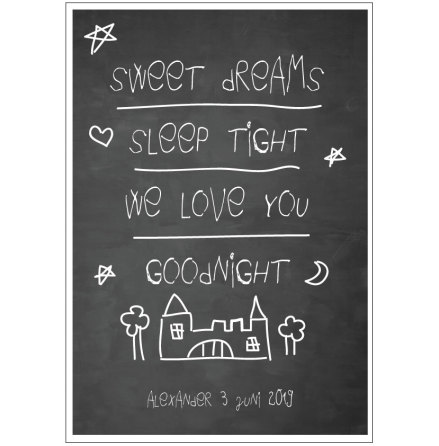 SWEET dREAMS
SLEEP TiGHT
WE LOVE YOU
GOOdNiGHT
ALEXANdER 3 JUNi 2019